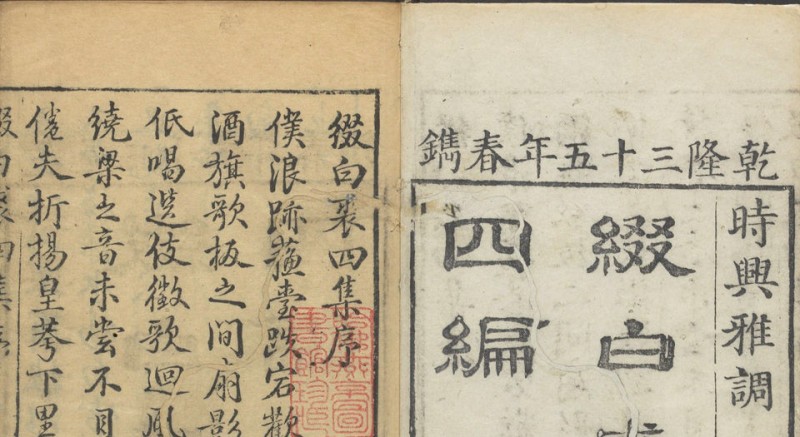 乾隆三十五年春鐫
時興雅調
綴白
四編
綴白裘四集序
僕浪跡蘓臺跌宕歡
酒旗歌板之間扇影
低唱選伎徵歌迴風
繞梁之音未嘗不目
倦夫折揚皇荂下里